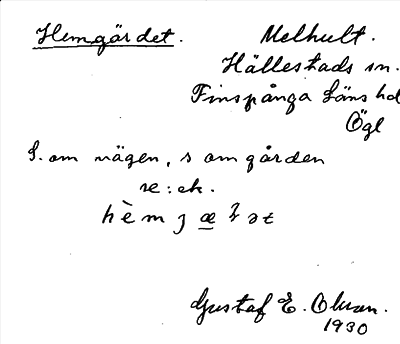 Hemgärdet.
Melhult.
Hällestads sn.
Finspånga läns hd
Ögl
S. om vägen, s om gården
re: ek.
Gustaf E. Olsson.
1930